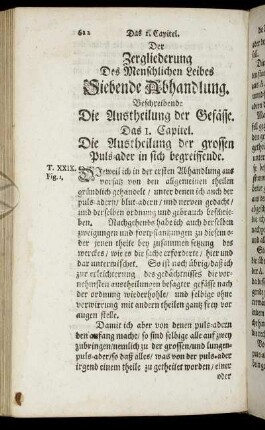 612 Das 1. Capitel.
Der
Zergliederung
Des Menschlichen Leibes
Siebende Abhandlung.
Beschreibend:
Die Austheilung der Gefässe.
Das 1. Capitel.
Die Austheilung der grossen
Puls-ader in sich begreiffende.
T. XXIX.
Fig. 1.
Jeweil ich in der ersten Abhandlung aus
vorsatz von den allgemeinen theilen
gründlich gehandelt / unter denen ich auch der
puls-adern / blut-adern / und nerven gedacht /
und derselben ordnung und gebrauch beschrie-
ben. Nachgehends habe ich auch derselben
zweigungen und fortpflanzungen zu diesem o-
der jenem theile bey zusammen setzung des
werckes / wie es die sache erforderte / hier und
dar unterwischet. So ist nach übrig / daß ich
zur erleichterung des gedächtnisses die vor-
nehmsten austheilungen besagter gefässe nach
der ordnung wiederhohle / und selbige ohne
verwirrung mit andern theilen gantz frey vor
augen stelle.
Damit ich aber von denen puls-adern
den anfang mache / so sind selbige alle auf zwey
zubringen / nemlich zu der grossen / und lungen-
puls-ader / so daß alles / was von der puls-ader
irgend einem theile zu getheilet worden / einer
oder